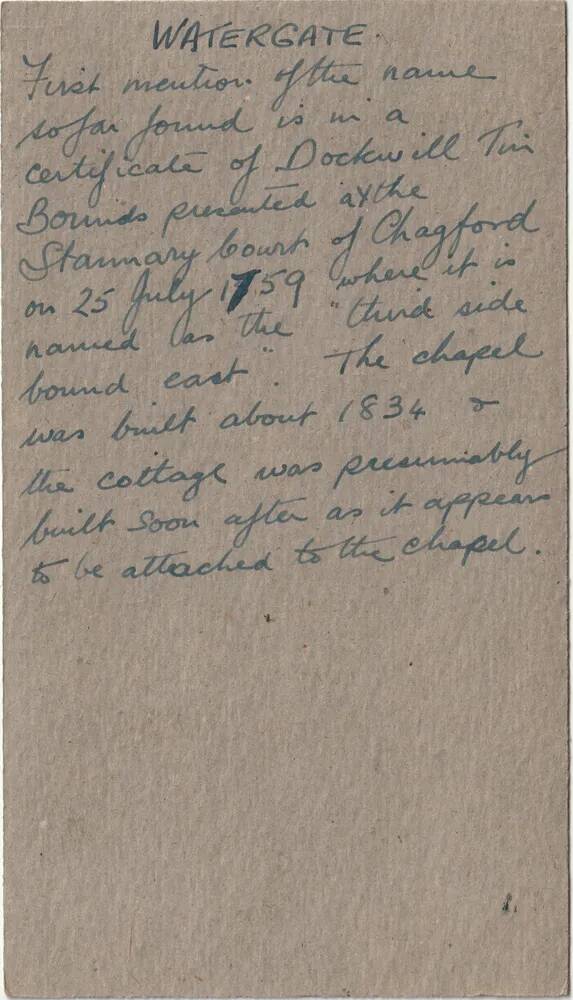 WATERGATE.
First mention of the name
so far found is in a
certificate of Dockwill Tin
Bounds presented at the
Stannary Court of Chagford
on 25 July 1759 where it is
named as the "third side
bound east". The chapel
was built about 1834 &
the cottage was presumably
built soon after as it appears
to be attached to the chapel.